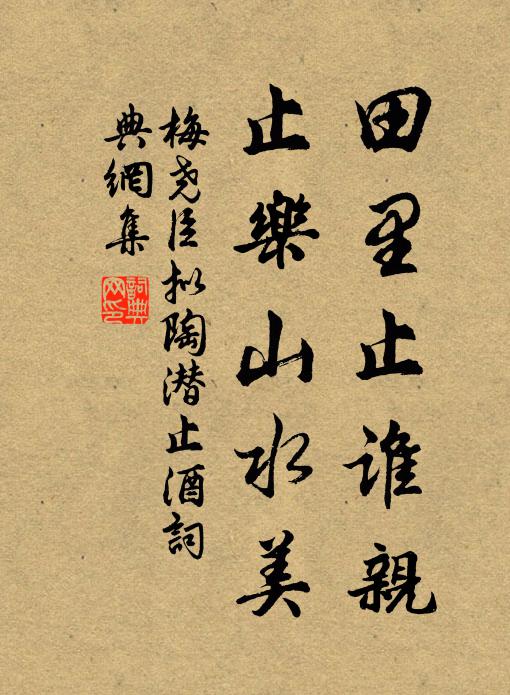 田里止谁親
止樂山水美
梅尧臣拟陶潜止酒詞
典網集
詞典
网印